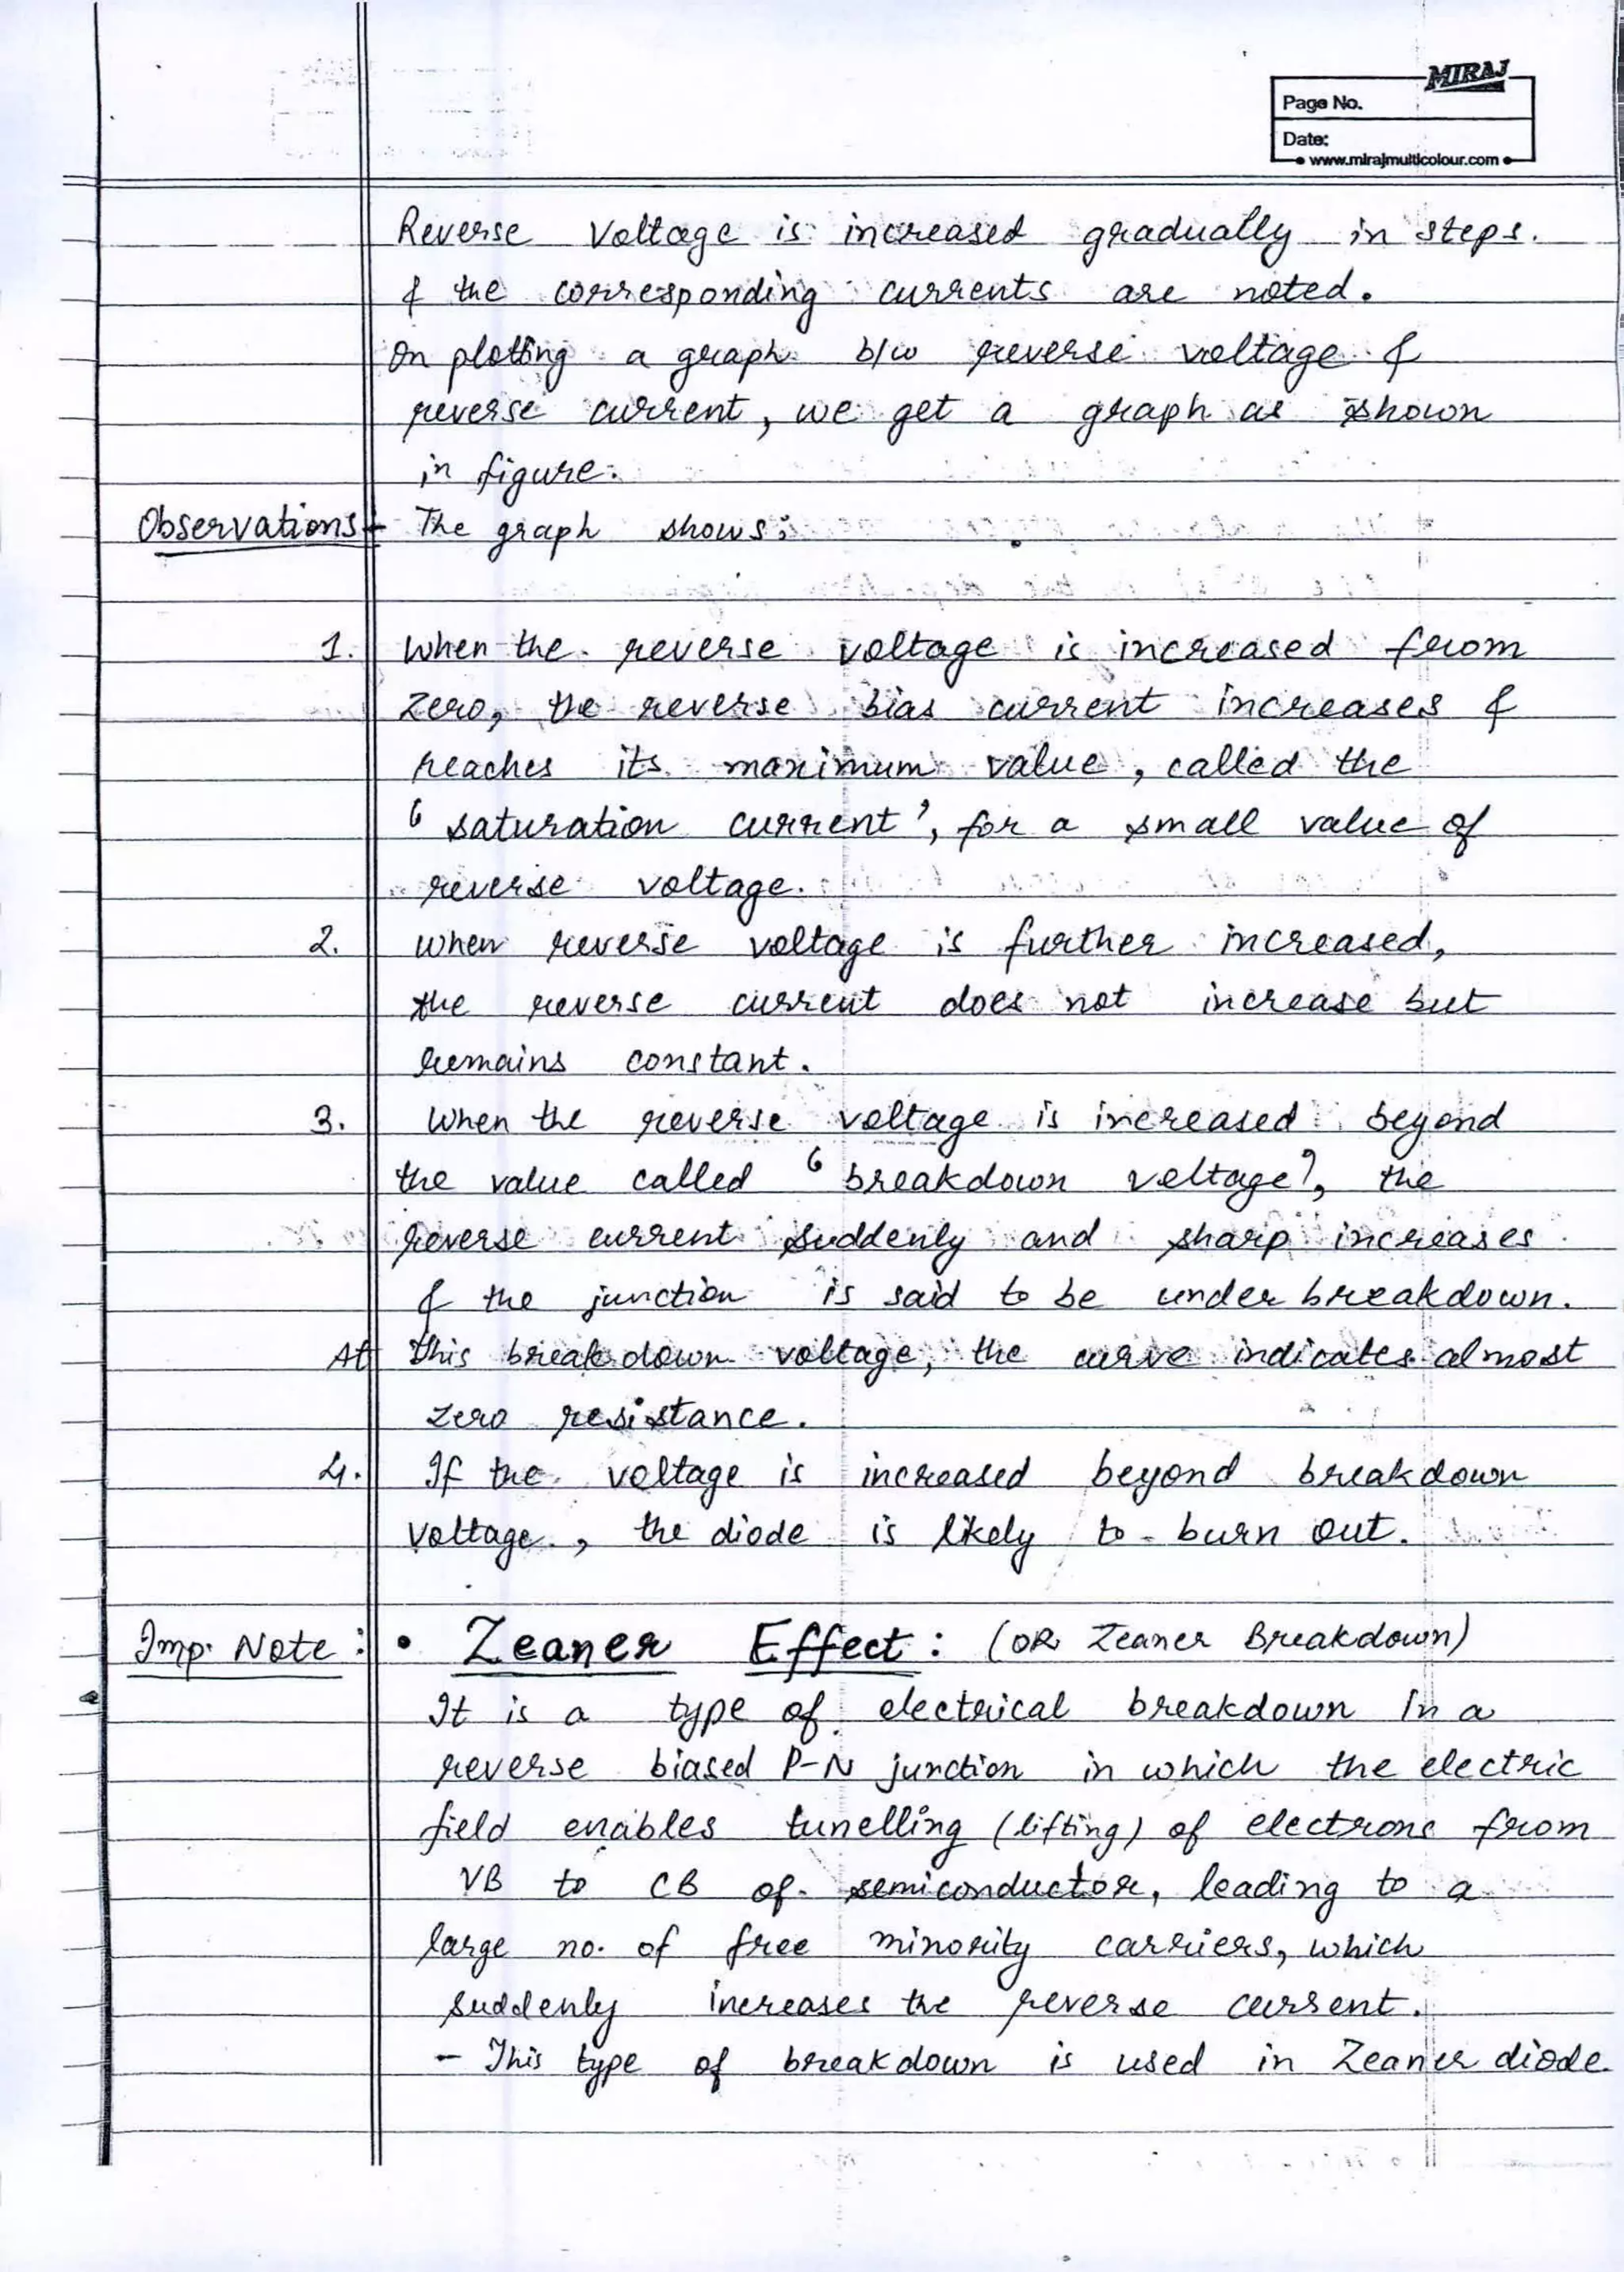 MIRAJ
Page No.
Date:
www.mirajmulticolour.com
Reverse voltage is increased gradually in steps.
& the corresponding currents are noted.
On plotting a graph b/w reverse voltage &
reverse current, we get a graph as shown
in figure.
Observations - The graph shows:
1. When the reverse voltage is increased from
zero, the reverse bias current increases &
reaches its maximum value, called the
'saturation current', for a small value of
reverse voltage.
2. When reverse voltage is further increased,
the reverse current does not increase but
remains constant.
3. When the reverse voltage is increased beyond
the value called 'breakdown voltage', the
reverse current suddenly and sharp increases
& the junction is said to be under breakdown.
At this breakdown voltage, the curve indicates almost
zero resistance.
4. If the voltage is increased beyond breakdown
voltage, the diode is likely to burn out.
Imp. Note: • Zeaner Effect: (OR Zeaner Breakdown)
It is a type of electrical breakdown in a
reverse biased P-N junction in which the electric
field enables tunelling (lifting) of electrons from
VB to CB of semiconductor, leading to a
large no. of free minority carriers, which
suddenly increases the reverse current.
- This type of breakdown is used in Zeaner diode.